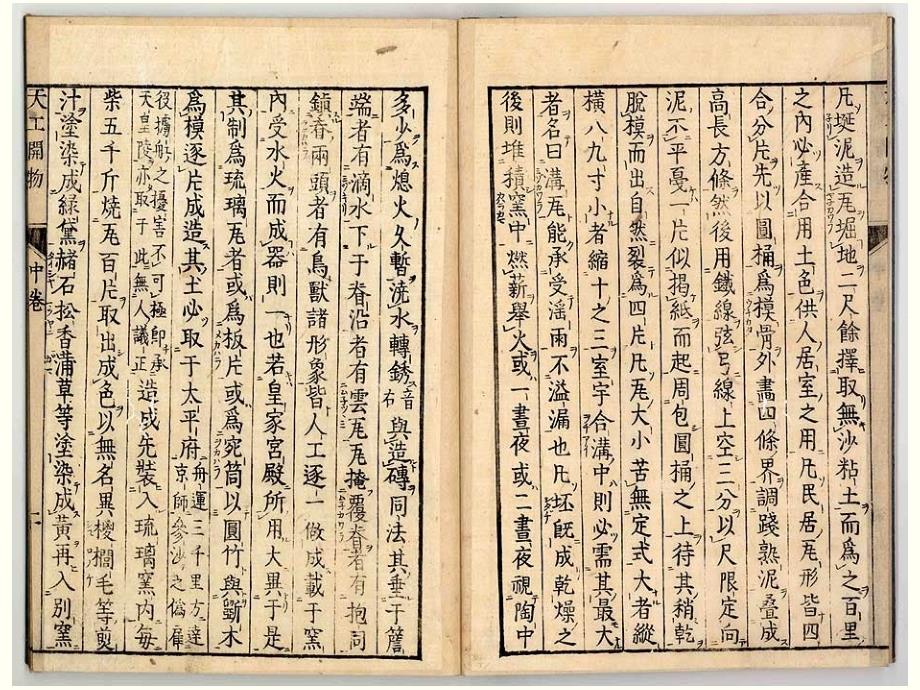 凡埏泥造瓦掘地二尺餘擇取無沙粘土而爲之百里
之內必產合用土色供人居室之用凡民居瓦形皆四
合分片先以圓桶爲模骨外畫四條界調踐熟泥疊成
高長方條然後用鐵線弦弓線上空三分以尺限定向
泥不平戛一片似揭紙而起周包圓桶之上待其稍乾
脫模而出自然裂爲四片凡瓦大小苦無定式大者縱
橫八九寸小者縮十之三室宇合溝中則必需其最大
者名曰溝瓦能承受淫雨不溢漏也凡坯既成乾燥之
後則堆積窯中燃薪舉火或一晝夜或二晝夜視陶中
多少爲熄火久暫澆水轉銹音右與造磚同法其垂于簷
端者有滴水下于脊沿者有雲瓦瓦掩覆脊者有抱同
鎮脊兩頭者有鳥獸諸形象皆人工逐一做成載于窯
內受水火而成器則一也若皇家宮殿所用大異于是
其制爲琉璃瓦者或爲板片或爲宛筒以圓竹與斲木
爲模逐片成造其土必取于太平府舟運三千里方達京師參沙之僞雇
役擄舡之擾害不可極即承天皇陵亦取于此無人議正造成先裝入琉璃窯內每
柴五千斤燒瓦百片取出成色以無名異椶櫚毛等煎
汁塗染成綠黛赭石松香蒲草等塗染成黃再入別窯
天工開物 中卷